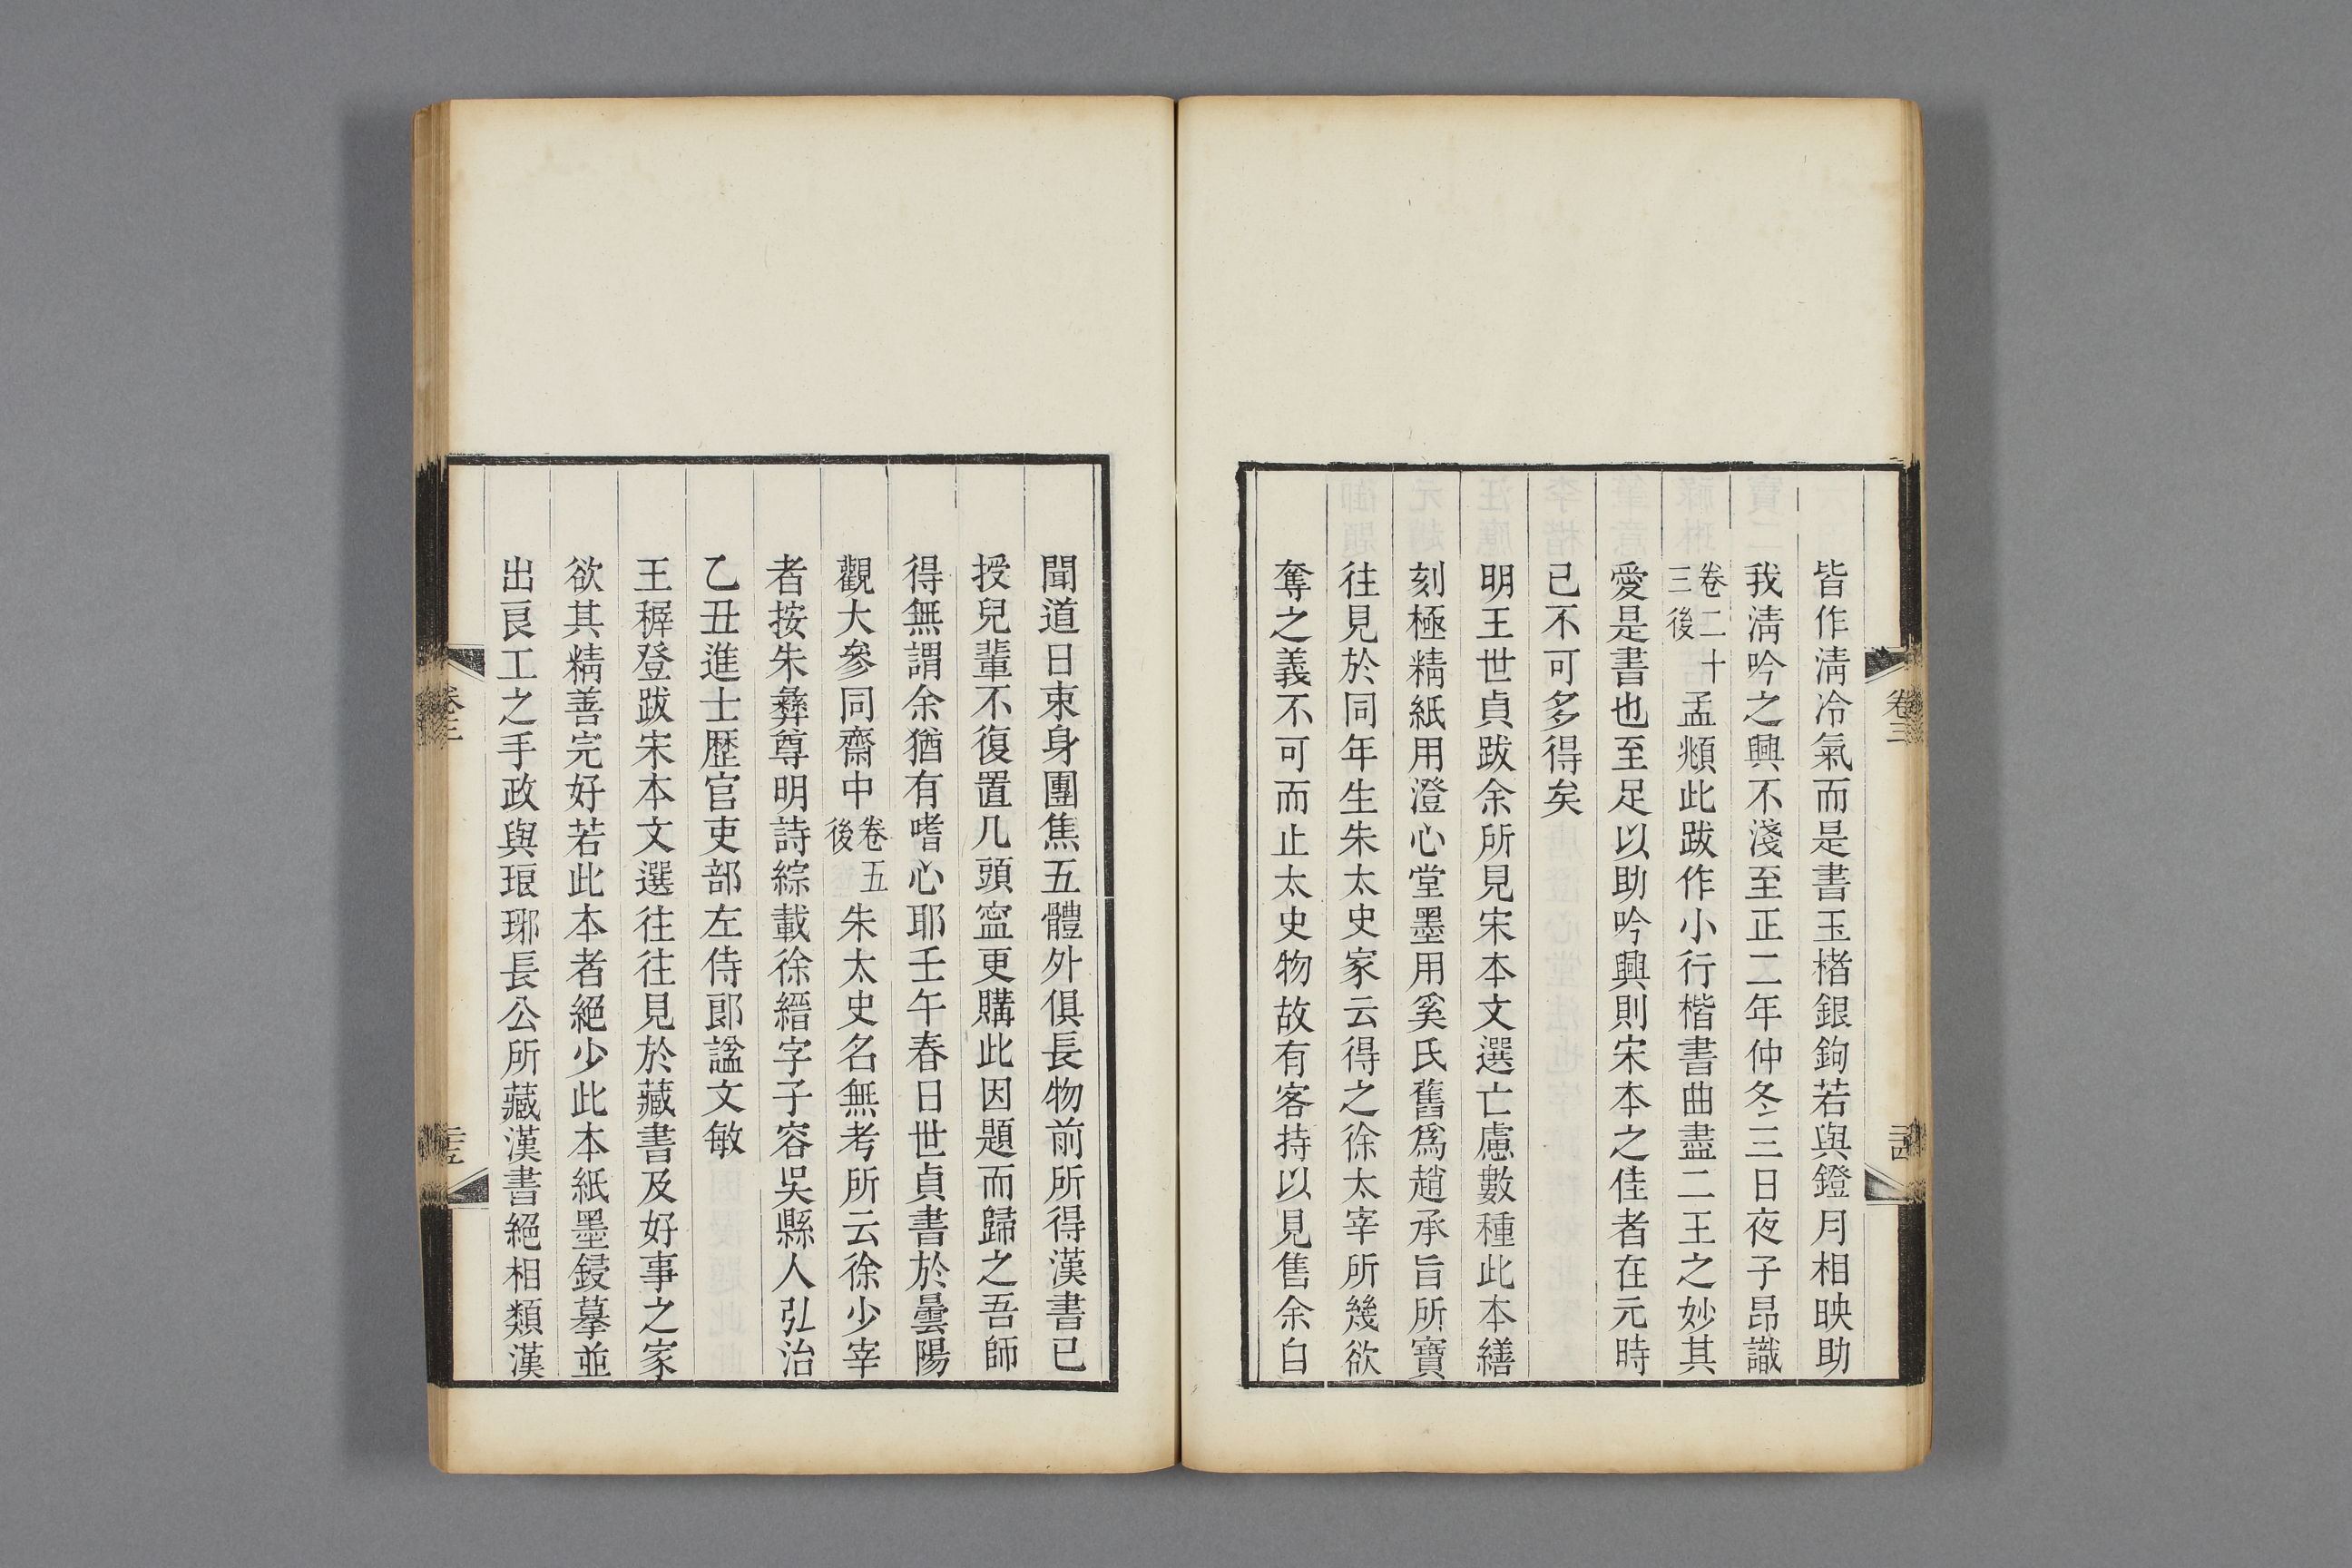 皆作淸冷氣而是書玉楮銀鉤若與鐙月相映助
我淸吟之興不淺至正二年仲冬三日夜子昂識
卷二十三後孟頫此跋作小行楷書曲盡二王之妙其
愛是書也至足以助吟興則宋本之佳者在元時
已不可多得矣
明王世貞跋余所見宋本文選亡慮數種此本繕
刻極精紙用澄心堂墨用奚氏舊爲趙承旨所寶
往見於同年生朱太史家云得之徐太宰所幾欲
奪之義不可而止太史物故有客持以見售余自
卷三
二十四
聞道日束身團焦五體外俱長物前所得漢書已
授兒輩不復置几頭寍更購此因題而歸之吾師
得無謂余猶有嗜心耶壬午春日世貞書於曇陽
觀大參同齋中卷五後朱太史名無考所云徐少宰
者按朱彝尊明詩綜載徐縉字子容吳縣人弘治
乙丑進士歷官吏部左侍郞諡文敏
王穉登跋宋本文選往往見於藏書及好事之家
欲其精善完好若此本者絕少此本紙墨鋟摹並
出良工之手政與琅琊長公所藏漢書絕相類漢
卷三
二十五